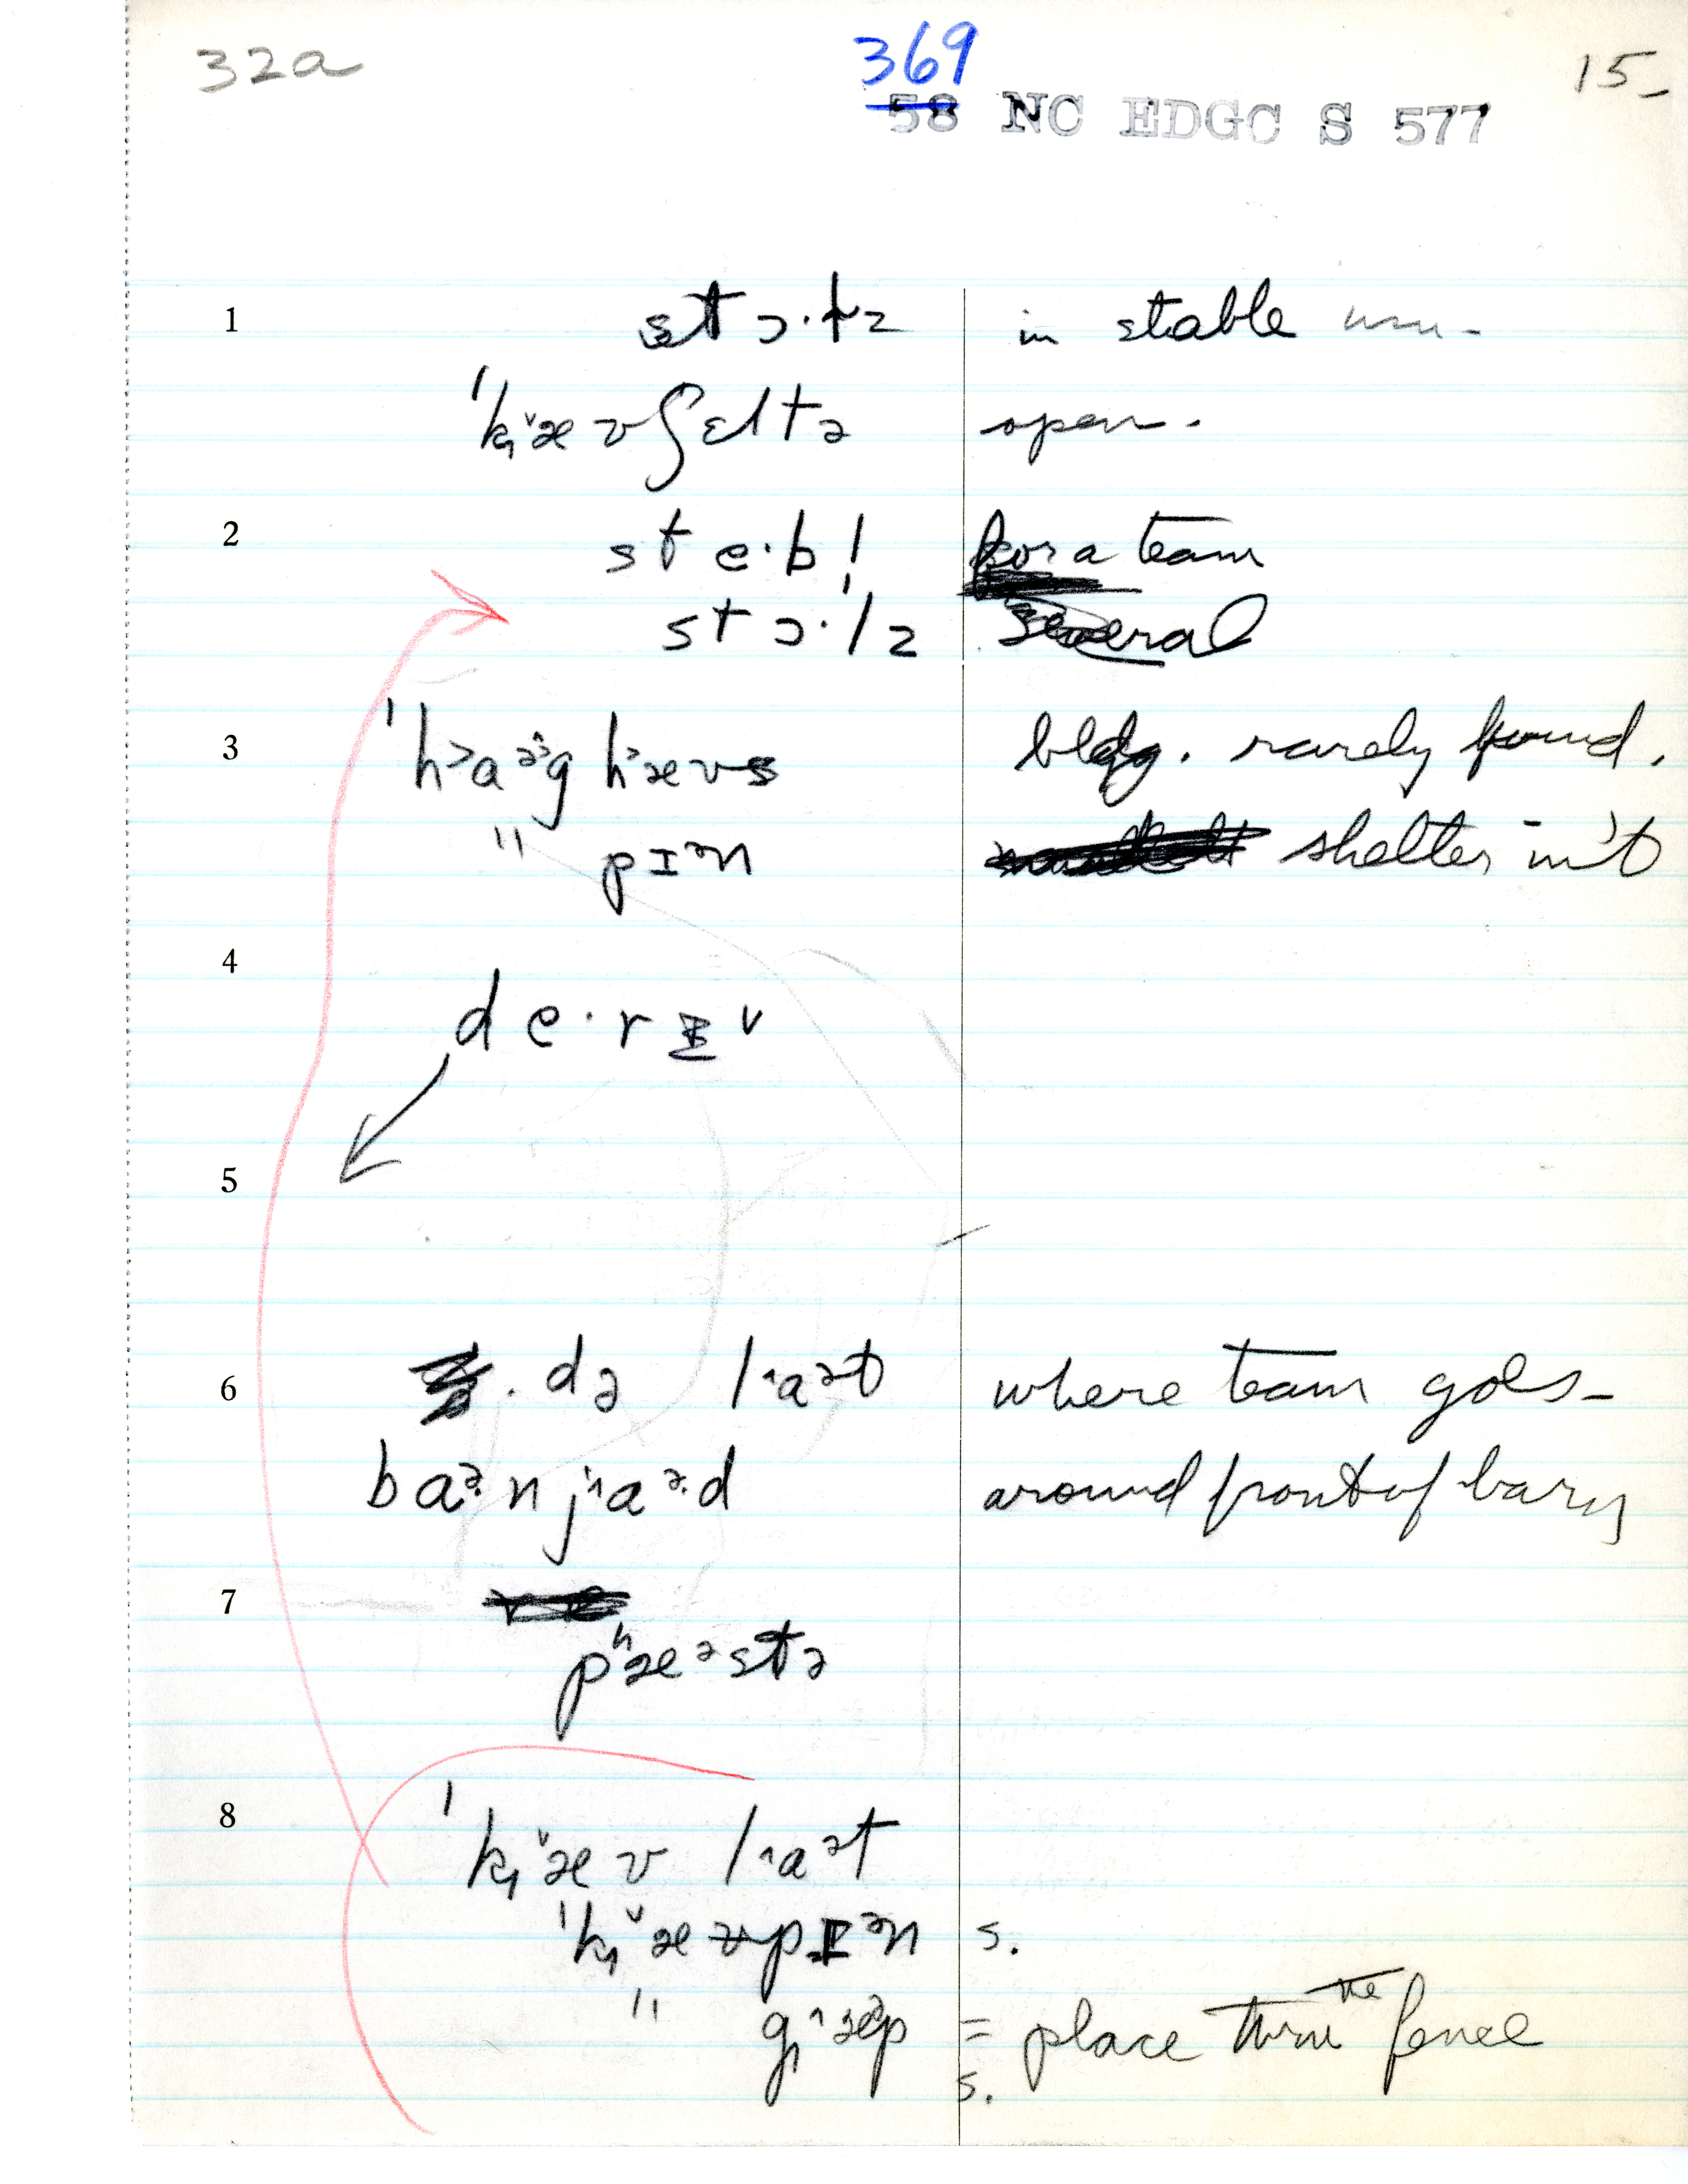 32a 369 15-
58 NC EDGC S 577
1 stɔ·lz in stable usu-
ˈkˇæʊʃɛltə open.
2 ste·bl̩ for a team
stɔ·lz several
3 ˈh˃aᵊg hæʊs bldg. rarely found.
" pɪᵊn shelter in 't
4
de·rɪ ˅
5
6 . də l˄aᵊt where team goes-
baᵊ·n j˄aᵊ·d around front of barn
7
pʰæᵊstə
8 ˈkˇæʊ l˄aᵊt
ˈkˇæʊpɪᵊn s.
" g˄æᵊp = place thru the fence
s.